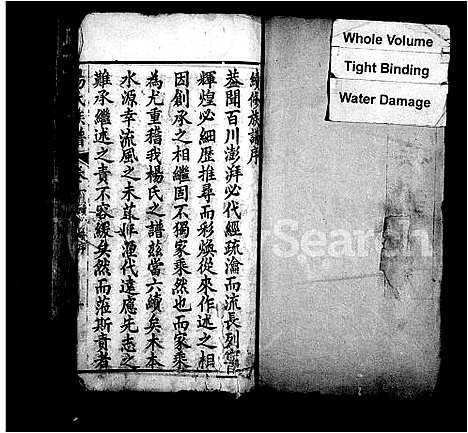 續修族譜序
蓋聞百川澎湃必代經疏瀹而流長列宿
輝煌必細歷推尋而彩煥從來作述之相
因創承之相繼固不獨家乘然也而家乘
為尤重稽我楊氏之譜茲當六續矣木本
水源幸流風之未墜年代遠應先志之
難承繼述之責不容緩矣然而蒞斯責者
楊氏族譜
Whole Volume
Tight Binding
Water Damage
Search